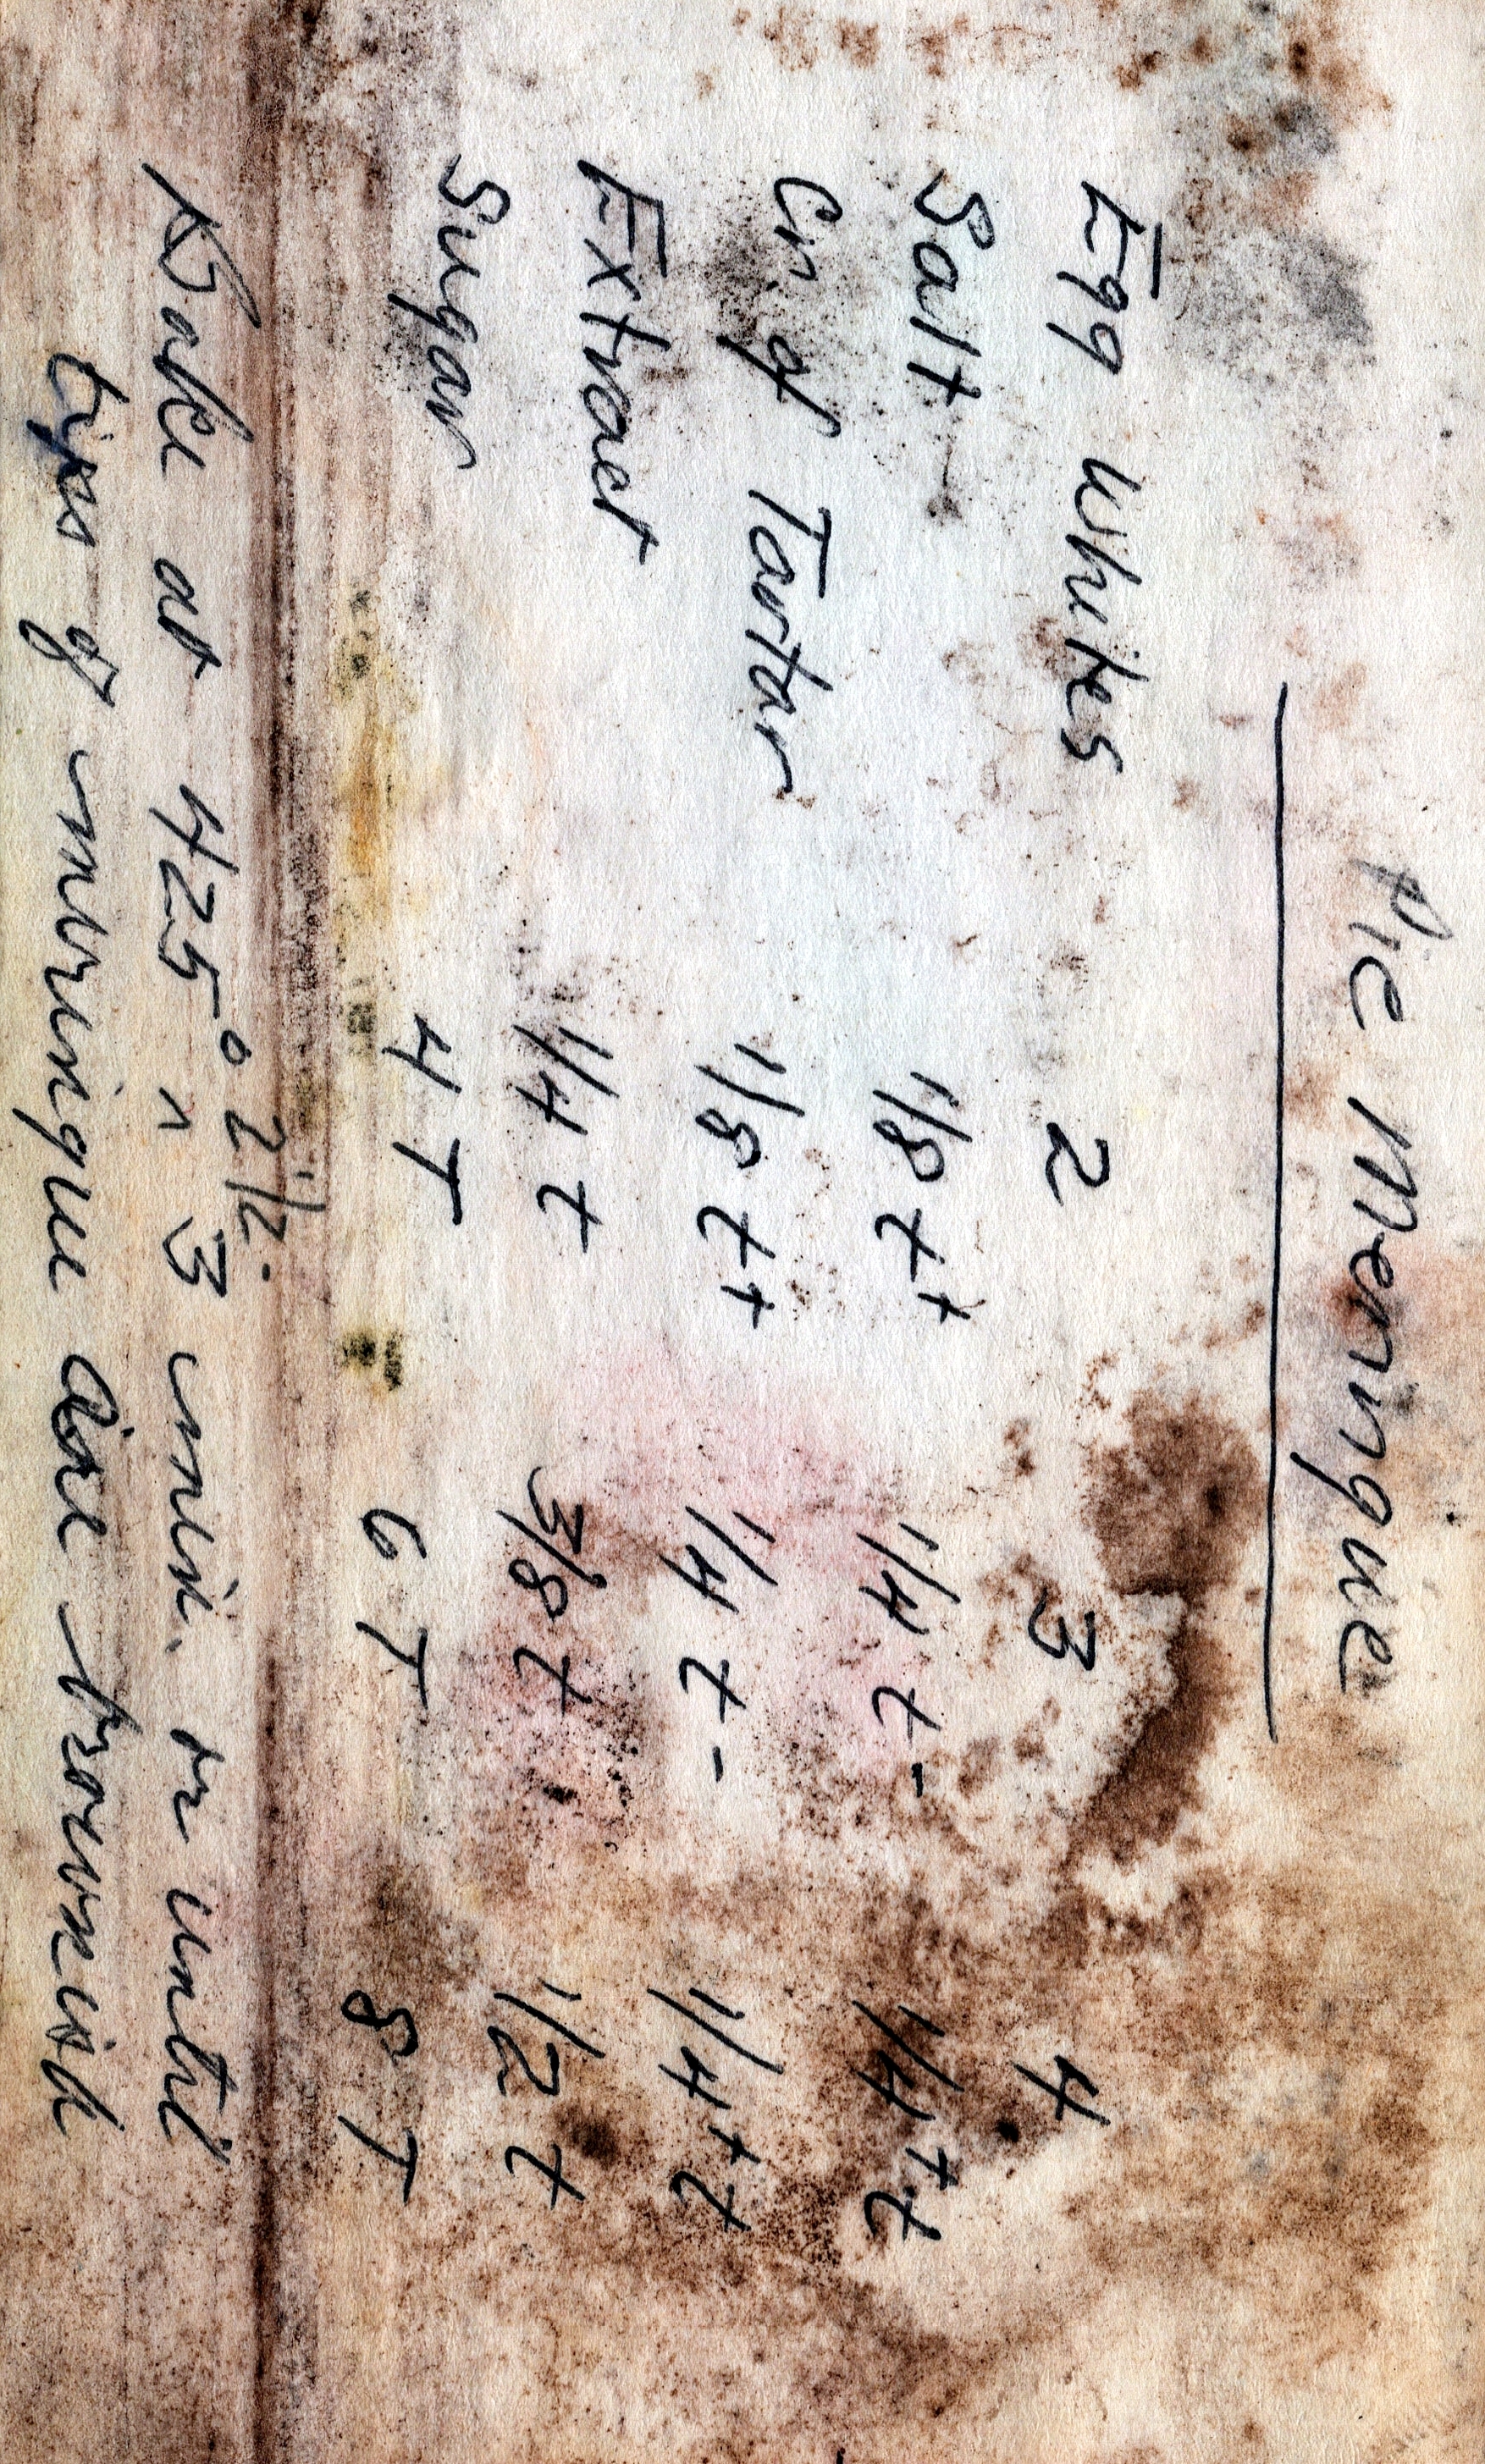 Pie Meringue
Egg Whites 2 3 4
Salt 1/8 t+ 1/4 t- 1/4+ t
Cr of Tartar 1/8 t+ 1/4 t- 1/4+ t
Extract 1/4 t 3/8 t 1/2 t
Sugar 4 T 6 T 8 T
2 1/2.
Bake at 425° ^ 3 min. or until
tips of meringue are brownish